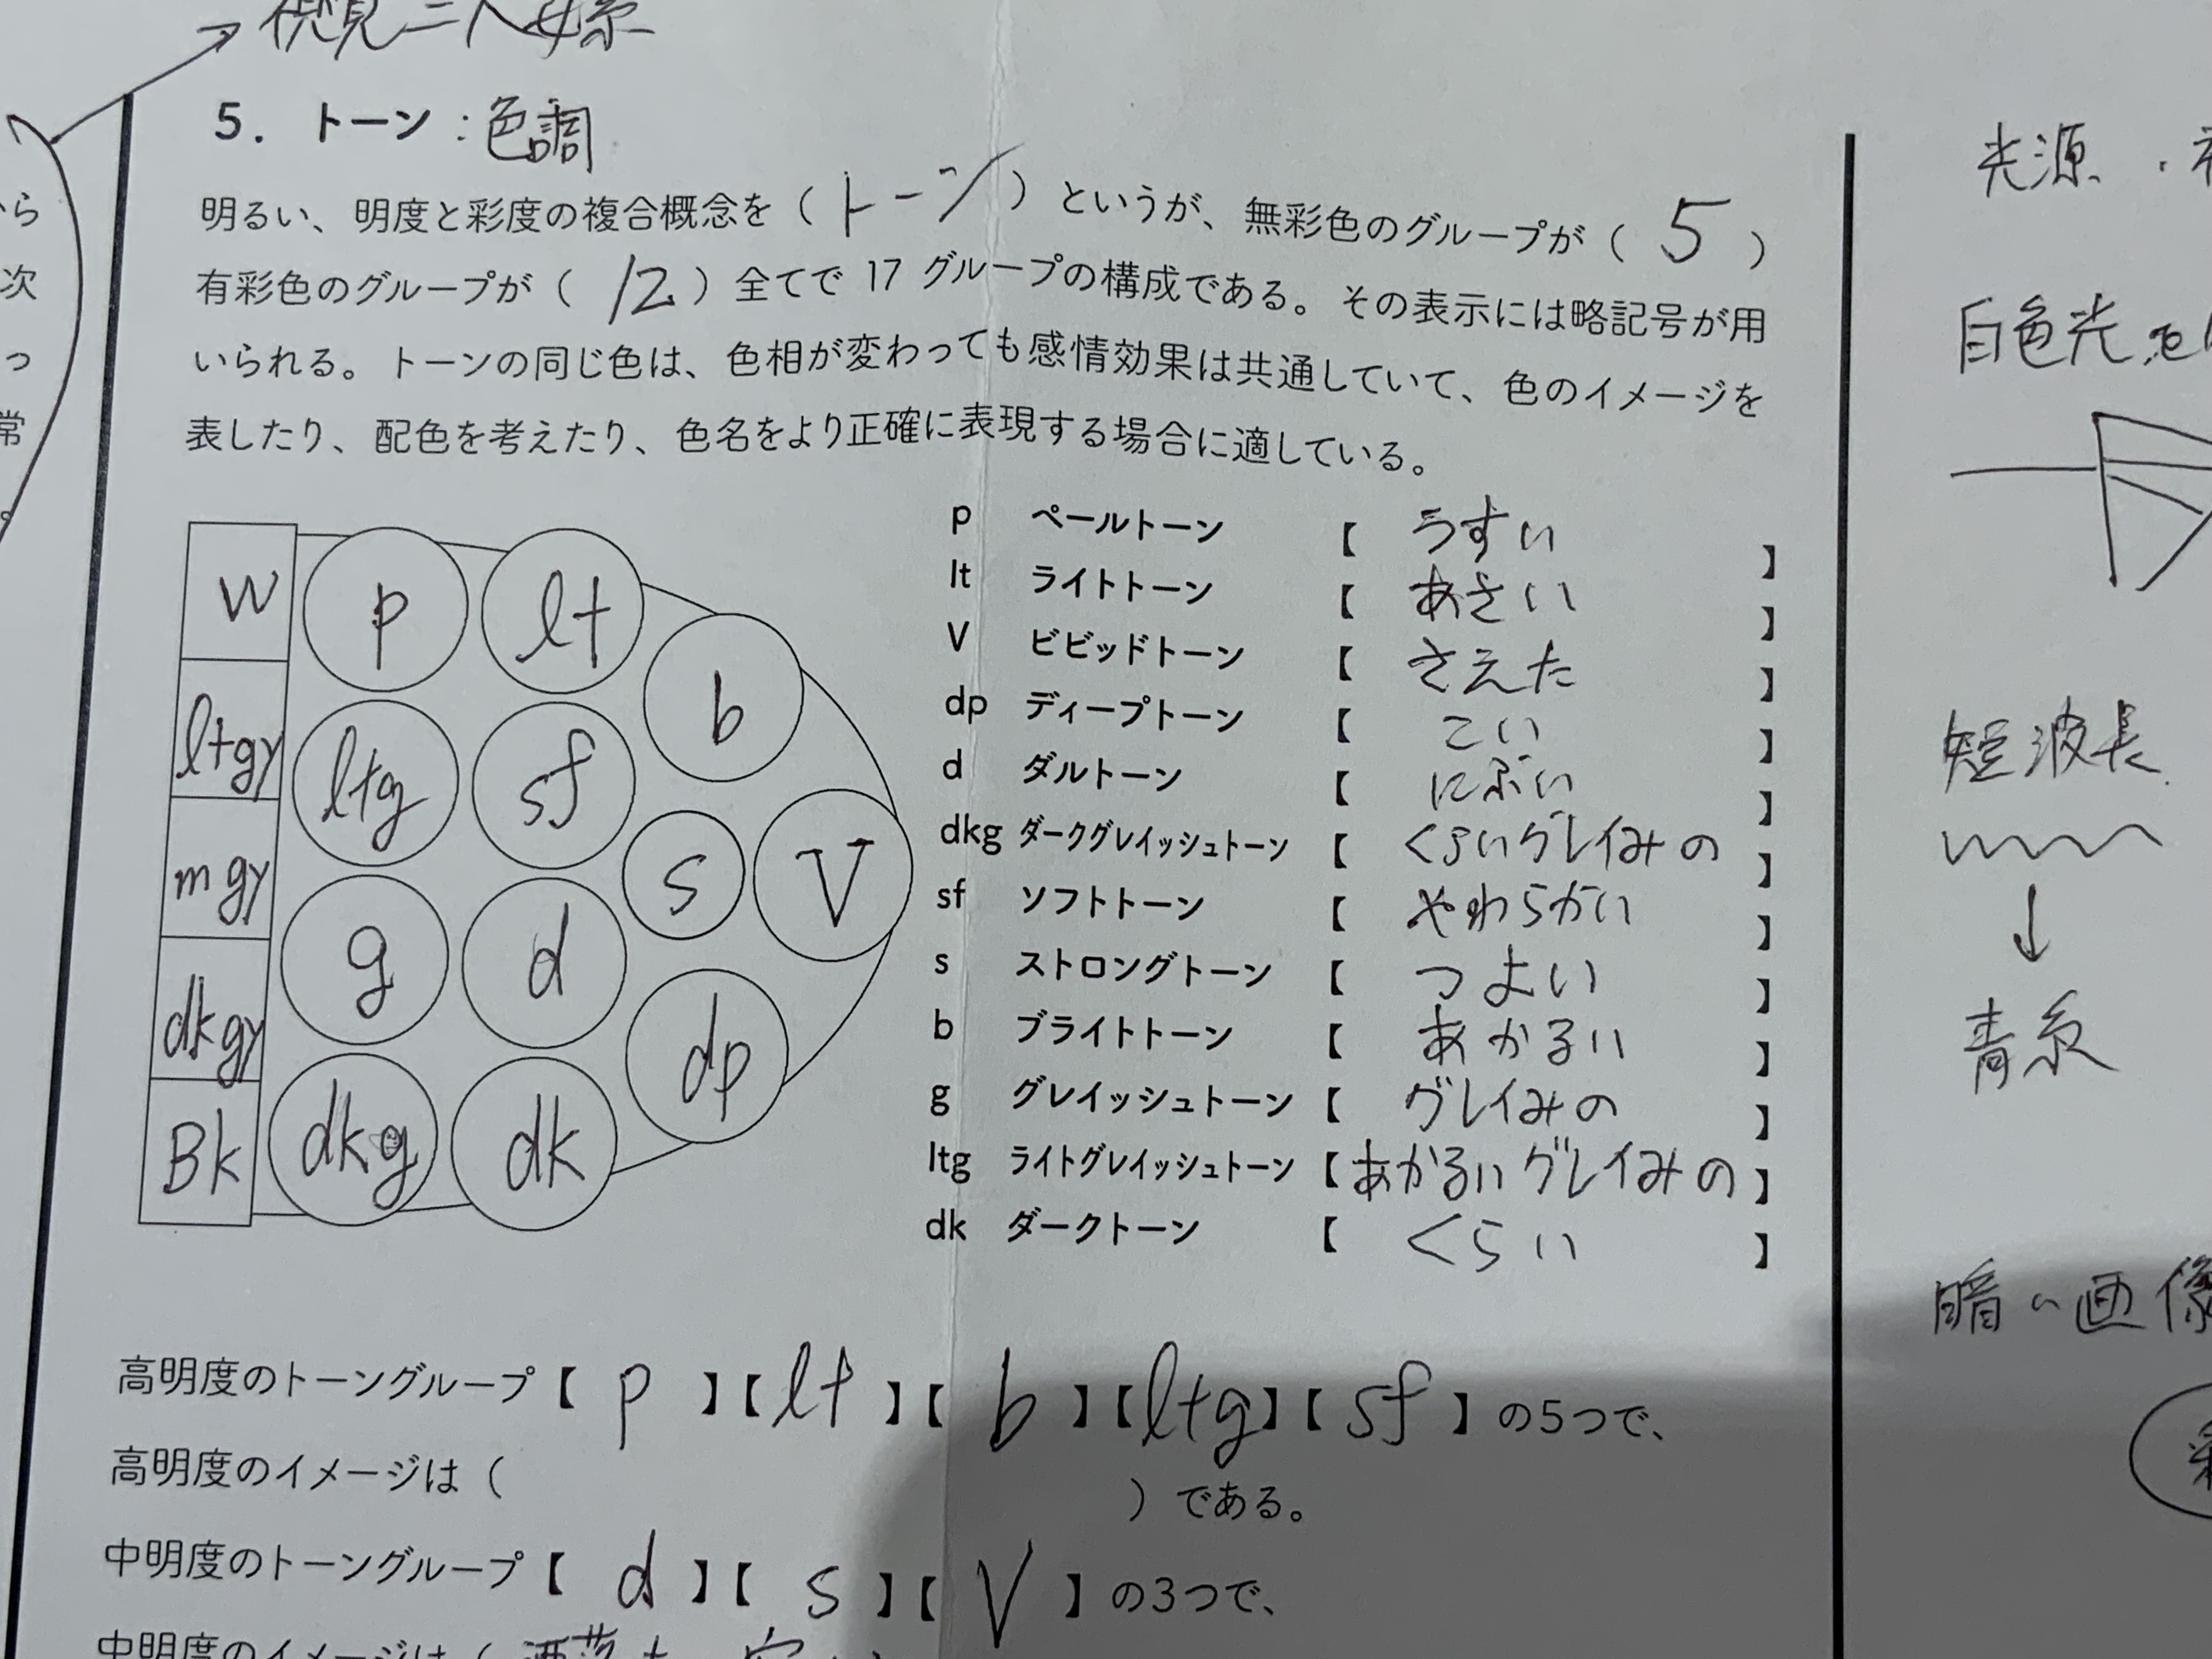 5. トーン：色調
明るい、明度と彩度の複合概念を（トーン）というが、無彩色のグループが（5）
有彩色のグループが（12）全てで 17 グループの構成である。その表示には略記号が用
いられる。トーンの同じ色は、色相が変わっても感情効果は共通していて、色のイメージを
表したり、配色を考えたり、色名をより正確に表現する場合に適している。
W p lt
b
ltgy ltg sf
mgy s V
g d
dkgy dp
Bk dkg dk
p ペールトーン 【うすい】
lt ライトトーン 【あさい】
V ビビッドトーン 【さえた】
dp ディープトーン 【こい】
d ダルトーン 【にぶい】
dkg ダークグレイッシュトーン 【くらいグレイみの】
sf ソフトトーン 【やわらかい】
s ストロングトーン 【つよい】
b ブライトトーン 【あかるい】
g グレイッシュトーン 【グレイみの】
ltg ライトグレイッシュトーン 【あかるいグレイみの】
dk ダークトーン 【くらい】
高明度のトーングループ【p】【lt】【b】【ltg】【sf】の5つで、
高明度のイメージは（ ）である。
中明度のトーングループ【d】【s】【V】の3つで、
中明度のイメージは（
から
次
っ
常
光源
白色光を
短波長
↓
青系
暗い画像